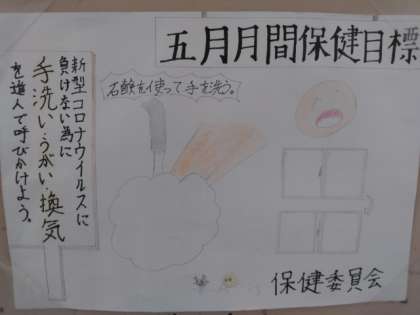 五月月間保健目標
石鹸を使って手を洗う。
新型コロナウイルスに
負けない為に
手洗い・うがい・換気
を進んで呼びかけよう。
保健委員会